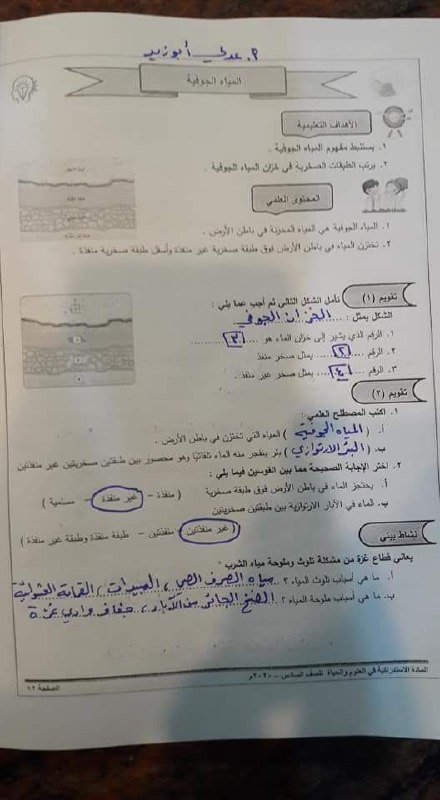 أ. عدلي أبوزيد
المياه الجوفية
الأهداف التعليمية
١. يستنبط مفهوم المياه الجوفية .
٢. يرتب الطبقات الصخرية في خزان المياه الجوفية .
المحتوى العلمي
١. المياه الجوفية هي المياه المخزنة في باطن الأرض .
٢. تختزن المياه في باطن الأرض فوق طبقة صخرية غير منفذة وأسفل طبقة صخرية منفذة .
تقويم (١)
تأمل الشكل التالي ثم أجب عما يلي :
الشكل يمثل : الخزان الجوفي
١. الرقم الذي يشير إلى خزان الماء هو ... ٣ ...
٢. الرقم ... ٢ ... يمثل صخر منفذ .
٣. الرقم ... ٤ ... يمثل صخر غير منفذ .
تقويم (٢)
١. اكتب المصطلح العلمي :
أ. ( المياه الجوفية ) المياه التي تختزن في باطن الأرض .
ب. ( البئر الارتوازي ) بئر يتفجر منه الماء تلقائيًا وهو محصور بين طبقتين صخريتين غير منفذتين
٢. اختر الإجابة الصحيحة مما بين القوسين فيما يلي :
أ. يحتجز الماء في باطن الأرض فوق طبقة صخرية ( منفذة – غير منفذة – مسامية )
ب. الماء في الآبار الارتوازية بين طبقتين صخريتين
( غير منفذتين – منفذتين – طبقة منفذة وطبقة غير منفذة )
نشاط بيتي
يعاني قطاع غزة من مشكلة تلوث وملوحة مياه الشرب "
أ. ما هي أسباب تلوث المياه ؟ مياه الصرف الصحي ، المبيدات ، القمامة العشوائية
ب. ما هي أسباب ملوحة المياه ؟ الضخ الجائر من الآبار ، جفاف وادي غزة
المادة الاستدراكية في العلوم والحياة للصف السادس – ٢٠٢٠م
الصفحة ١٢